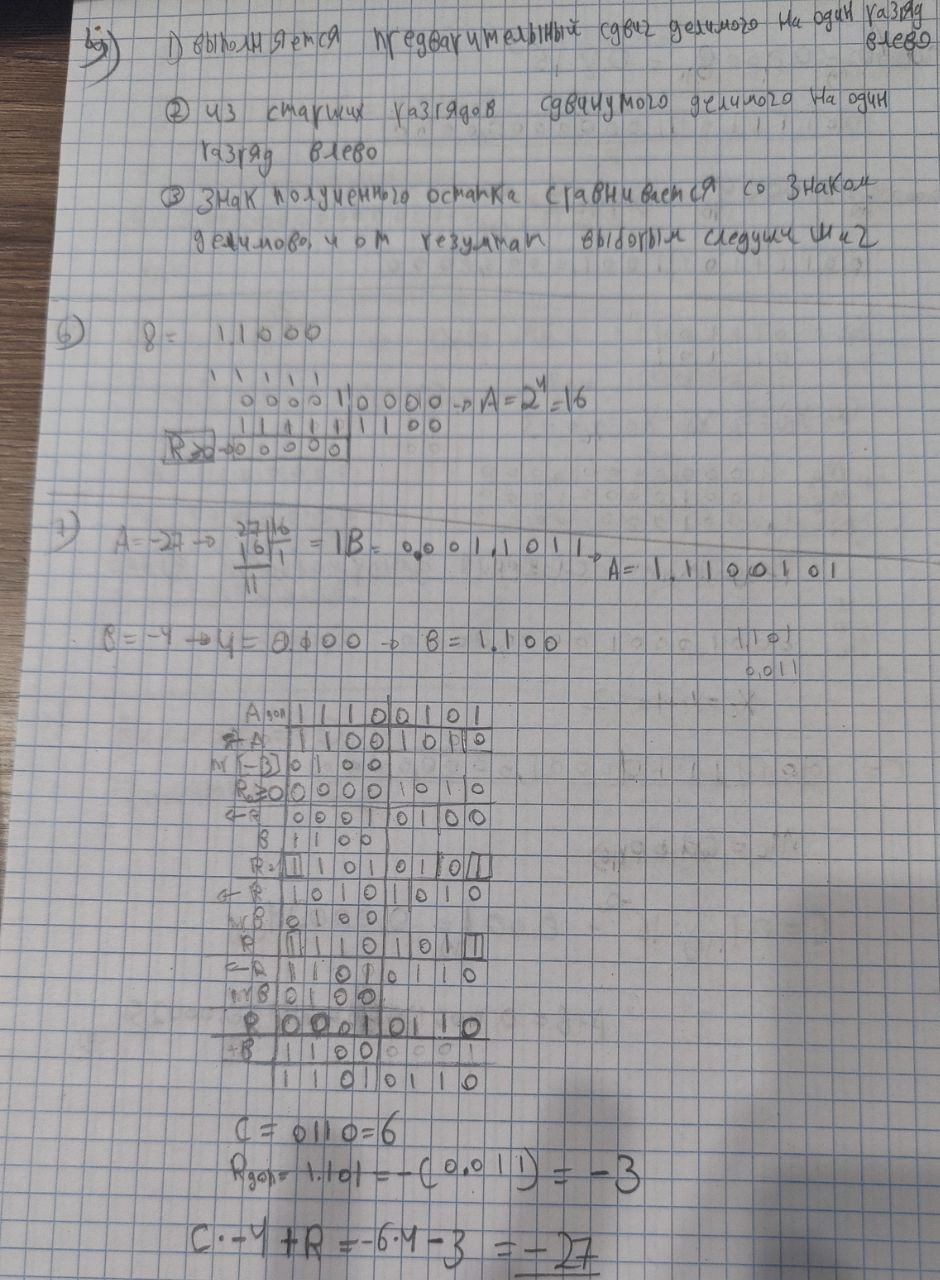 1) выполняется предварительный сдвиг делимого на один разряд
влево
② из старших разрядов сдвинутого делимого на один
разряд влево
③ Знак полученного остатка сравнивается со знаком
делимово, и от
6) 8 = 11000
1 1 1 1 1
0 0 0 0 1 0 0 0 0 → A = 2^4 = 16
1 1 1 1 1 1 1 0 0
R≥0 → 0 0 0 0 0
7) A = -27 → 27 | 16
16 1 = 1B = 0.001.1011 →
11
A = 1.1100101
B = -4 → 4 = 0.100 → B = 1.100
1,101
0,011
Aдоп 1 1 1 0 0 1 0 1
← A 1 1 0 0 1 0 1 0
[-B] 0 1 0 0
R≥0 0 0 0 0 1 0 1 0
← R 0 0 0 1 0 1 0 0
B 1 1 0 0
R= 1 1 0 1 0 1 0 1
← R 1 0 1 0 1 0 1 0
B 0 1 0 0
R 1 1 1 0 1 0 1 1
← R 1 1 0 1 0 1 1 0
B 0 1 0 0
R 0 0 0 1 0 1 1 0
-B 1 1 0 0 0 0 0 1
1 1 0 1 0 1 1 0
C = 0110 = 6
Rдоп = 1.101 = -(0.011) = -3
C · -4 + R = -6·4 - 3 = -27